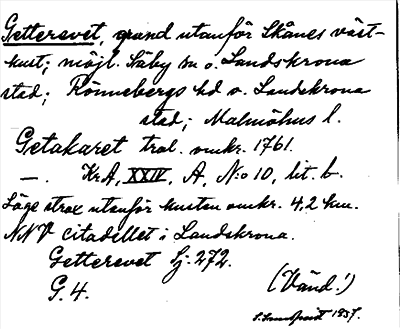 Getterevet, grund utanför Skånes väst-
kust; möjl. Säby sn o. Landskrona
stad; Rönnebergs hd o. Landskrona
stad; Malmöhus l.
Getakaret tral. omkr. 1761.
—. KrA, XXIV, A, N:o 10, lit. b.
Läge strax utanför kusten omkr. 4,2 km.
NNV citadellet i Landskrona.
Getterevet Sj. 272.
G. 4.
(Vänd!)
1937.